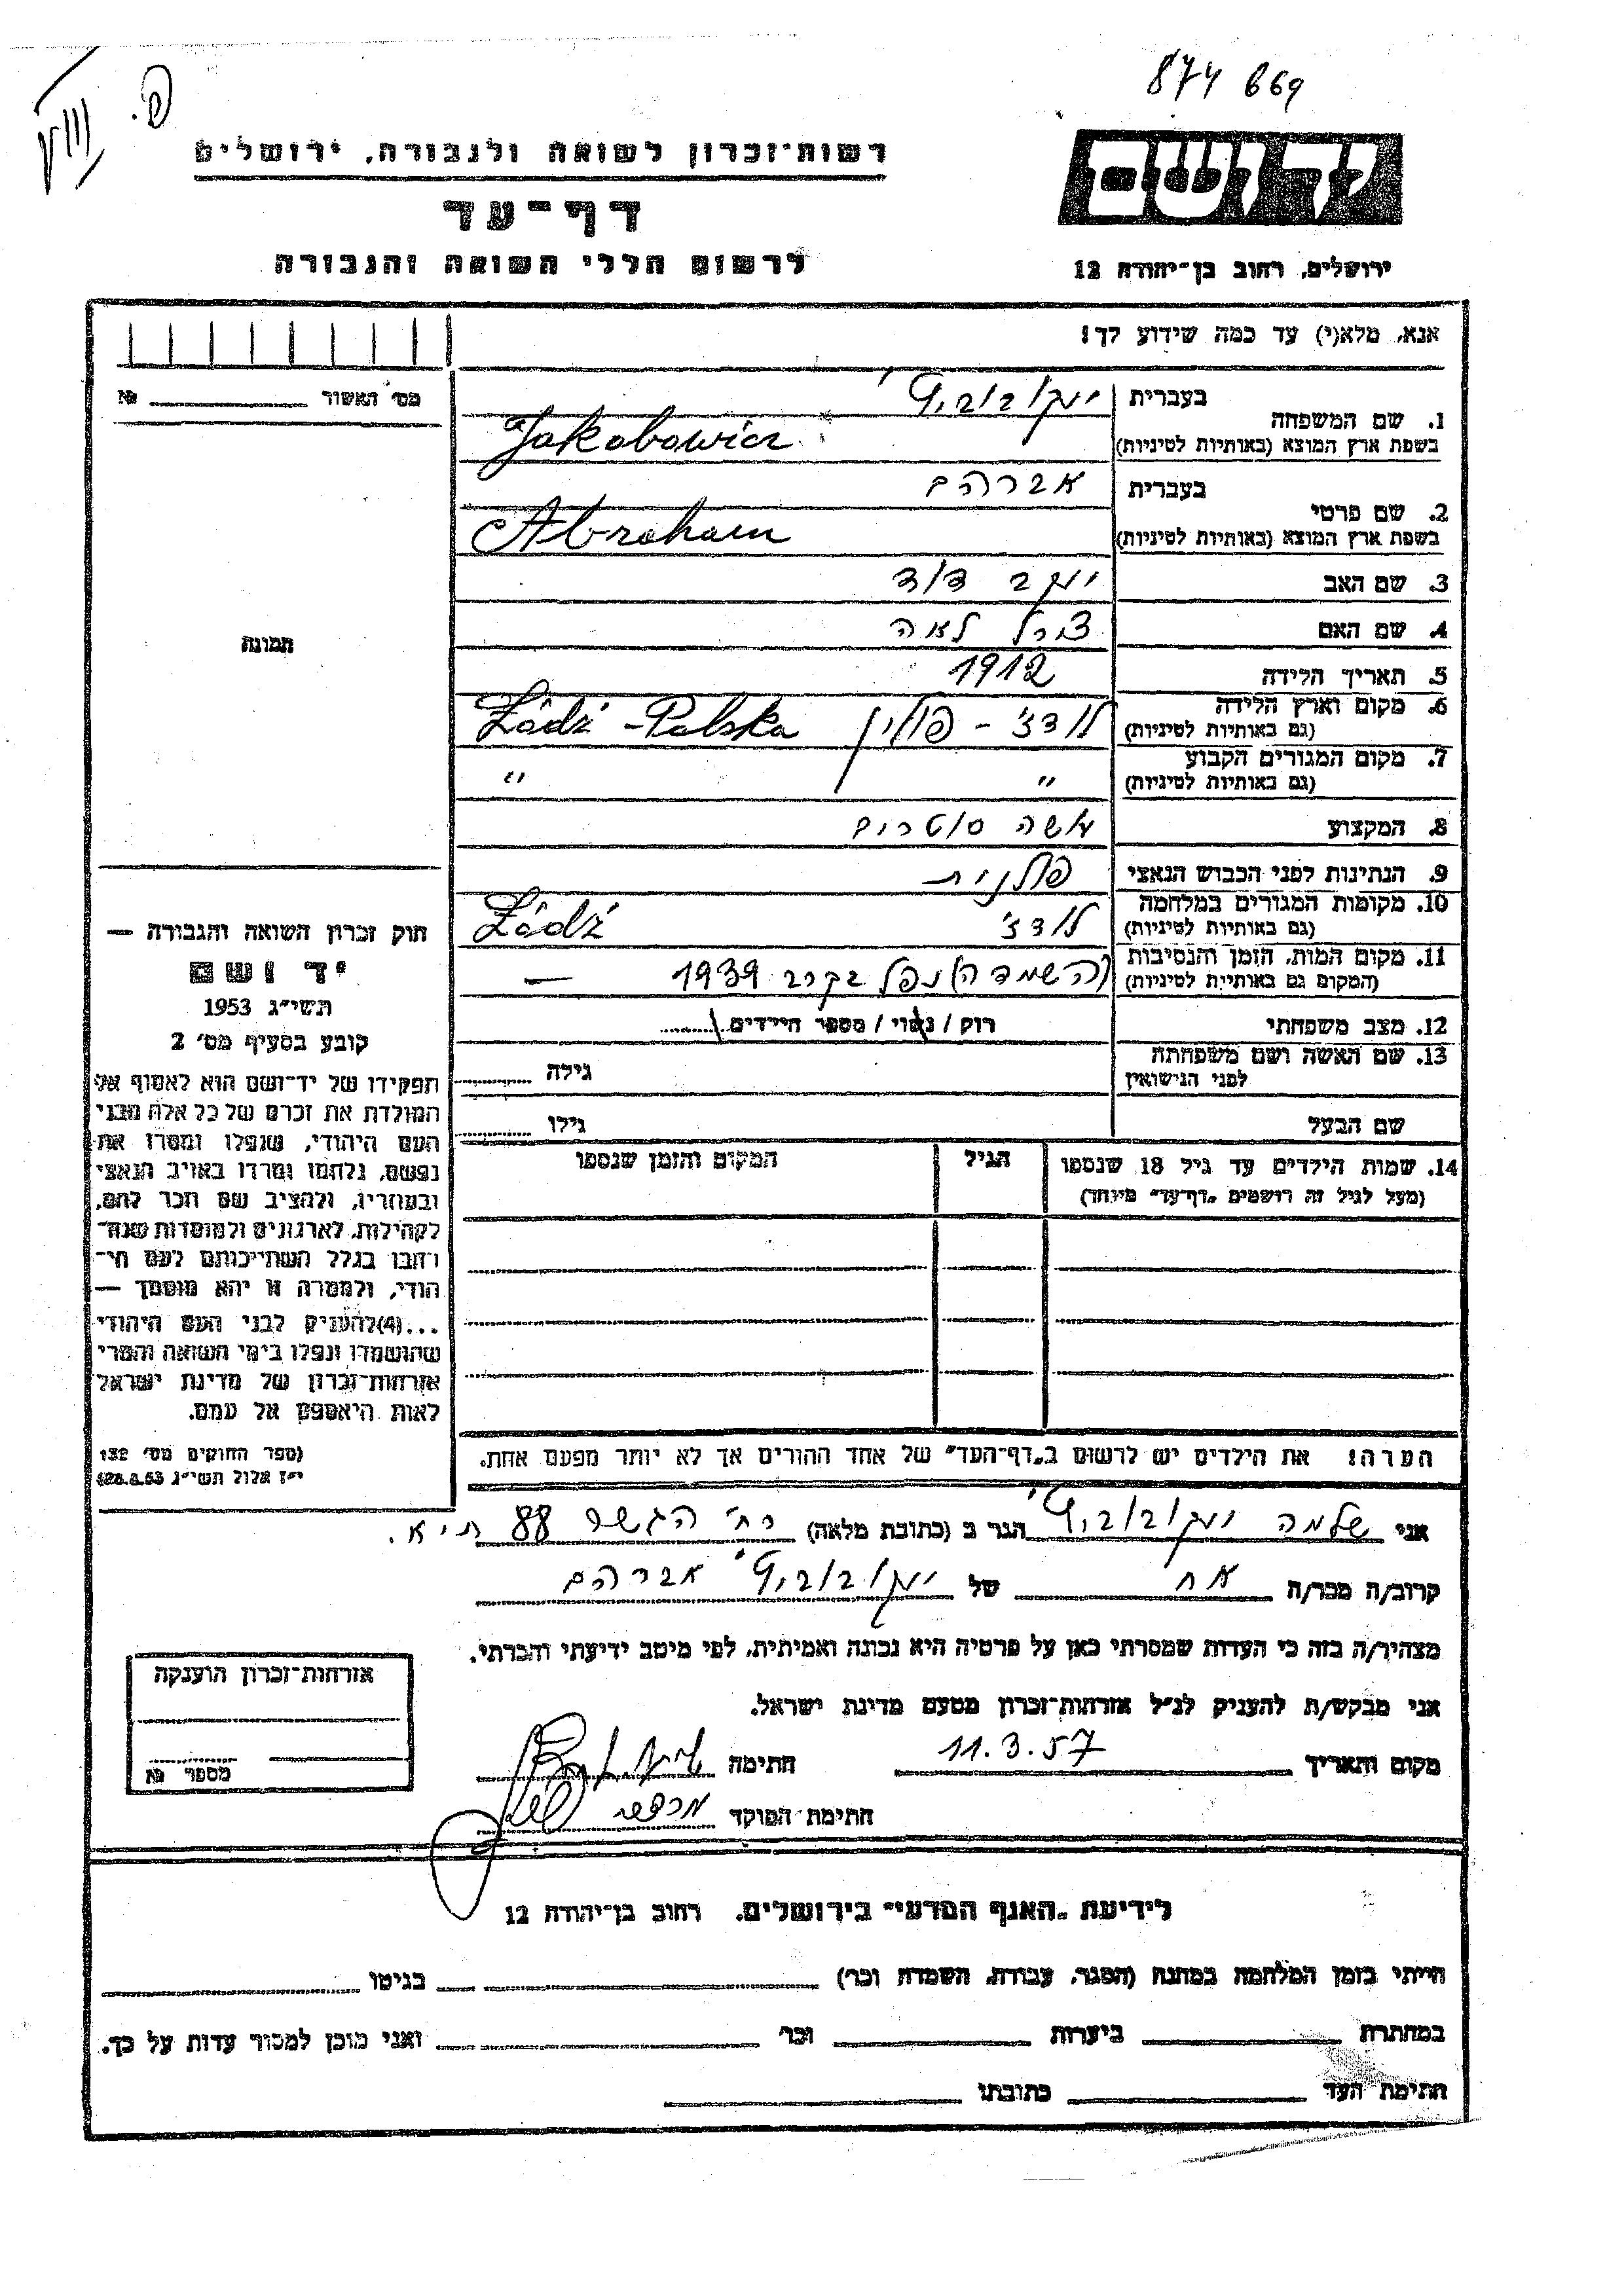 874 669
פ.
רשות-זכרון לשואה ולגבורה, ירושלים
יד ושם
דף-עד
לרשום חללי השואה והגבורה
ירושלים, רחוב בן-יהודה 12
אנא, מלא(י) עד כמה שידוע לך!
מס' האשור № ______
1. שם המשפחה
בעברית יעקובוביץ'
בשפת ארץ המוצא (באותיות לטיניות) Jakobowicz
2. שם פרטי
בעברית אברהם
בשפת ארץ המוצא (באותיות לטיניות) Abraham
3. שם האב יעקב דוד
4. שם האם לאה
5. תאריך הלידה 1912
6. מקום וארץ הלידה
(גם באותיות לטיניות) לודז' - פולין Łódź - Polska
7. מקום המגורים הקבוע
(גם באותיות לטיניות) " "
8. המקצוע עושה סוטרים
9. הנתינות לפני הכבוש הנאצי פולנית
10. מקומות המגורים במלחמה
(גם באותיות לטיניות) לודז' Łódź
11. מקום המות, הזמן והנסיבות
(המקום גם באותיות לטיניות) (השמדה) נפל בקרב 1939 —
12. מצב משפחתי רוק / נשוי / מספר הילדים
13. שם האשה ושם משפחתה
לפני הנישואין גילה
שם הבעל גילו
14. שמות הילדים עד גיל 18 שנספו הגיל המקום והזמן שנספו
(מעל לגיל זה רושמים „דף-עד" מיוחד)
תמונה
חוק זכרון השואה והגבורה —
יד ושם
תשי"ג 1953
קובע בסעיף מס' 2
תפקידו של יד-ושם הוא לאסוף אל
המולדת את זכרם של כל אלה מבני
העם היהודי, שנפלו ומסרו את
נפשם, נלחמו ומרדו באויב הנאצי
ובעוזריו, ולהציב שם וזכר להם,
לקהילות, לארגונים ולמוסדות שנח-
רבו בגלל השתייכותם לעם הי-
הודי, ולמטרה זו יהא מוסמך —
...(4) להעניק לבני העם היהודי
שהושמדו ונפלו בימי השואה והמרי
אזרחות-זכרון של מדינת ישראל
לאות היאספם אל עמם.
(ספר החוקים מס' 132
י"ז אלול תשי"ג 28.8.53)
הערה! את הילדים יש לרשום ב„דף-העד" של אחד ההורים אך לא יותר מפעם אחת.
אני שלמה יעקובוביץ' הגר ב (כתובת מלאה) רח' הגשר 88 ת"א.
קרוב/ה מכר/ה אח של יעקובוביץ' אברהם
מצהיר/ה בזה כי העדות שמסרתי כאן על פרטיה היא נכונה ואמיתית, לפי מיטב ידיעתי והכרתי.
אני מבקש/ת להעניק לנ"ל אזרחות-זכרון מטעם מדינת ישראל.
מקום ותאריך 11.3.57 חתימה
חתימת הפוקד
אזרחות-זכרון הוענקה
מספר №
לידיעת „האגף המדעי" בירושלים, רחוב בן-יהודה 12
הייתי בזמן המלחמה במחנה (הסגר, עבודה, השמדה וכו') בגיטו
במחתרת ביערות וכו' ואני מוכן למסור עדות על כך.
חתימת העד כתובתו